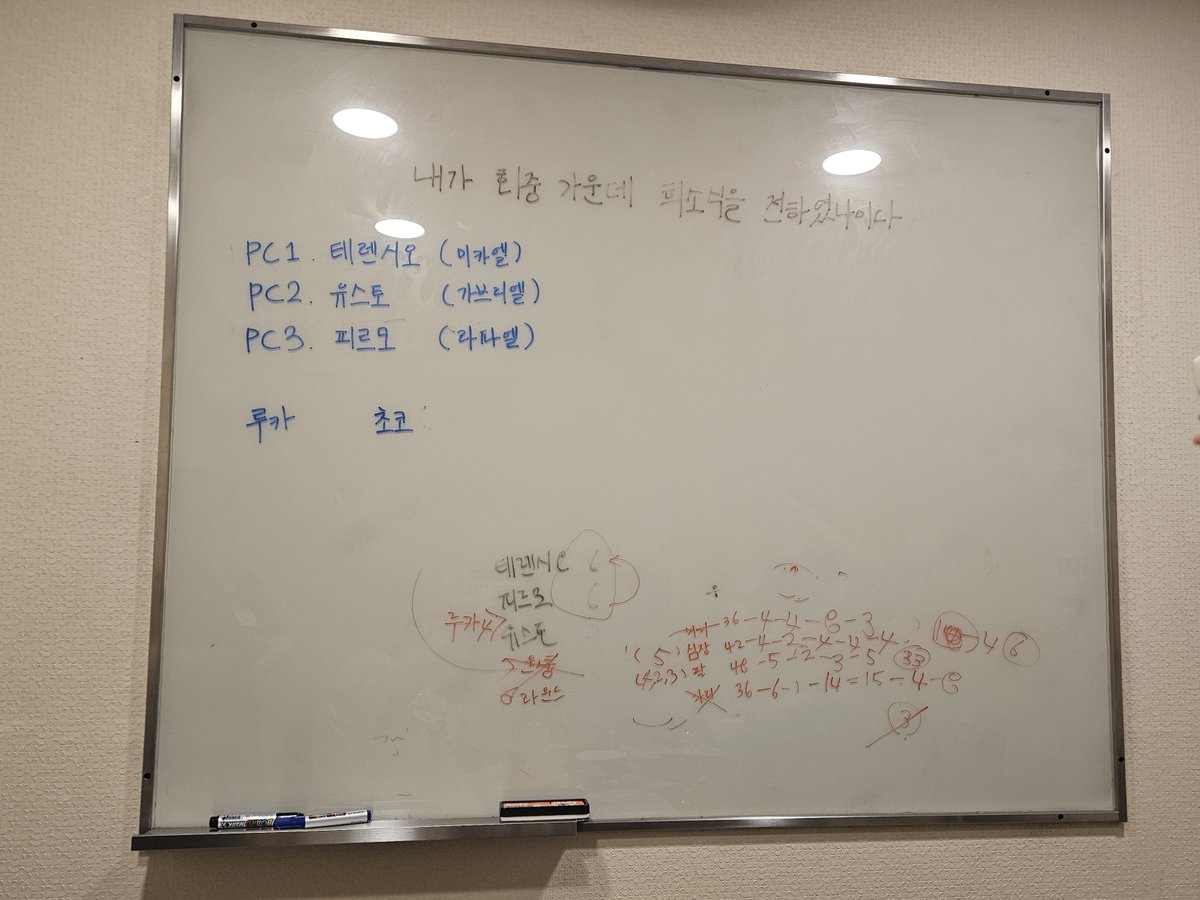 내가 회중 가운데 희소식을 전하였나이다
PC1. 테렌시오 (미카엘)
PC2. 유스토 (가브리엘)
PC3. 피르모 (라파엘)
루카 초코
테렌시오 6
피르모 6
루카 4
유스토
6라운드
머리 36-4-4-8-3
(5) 심장 42-4-2-4-4-4 -4 6
(4,2,3) 팔 48-5-2-3-5 33
다리 36-6-1-14=15-4-8
3